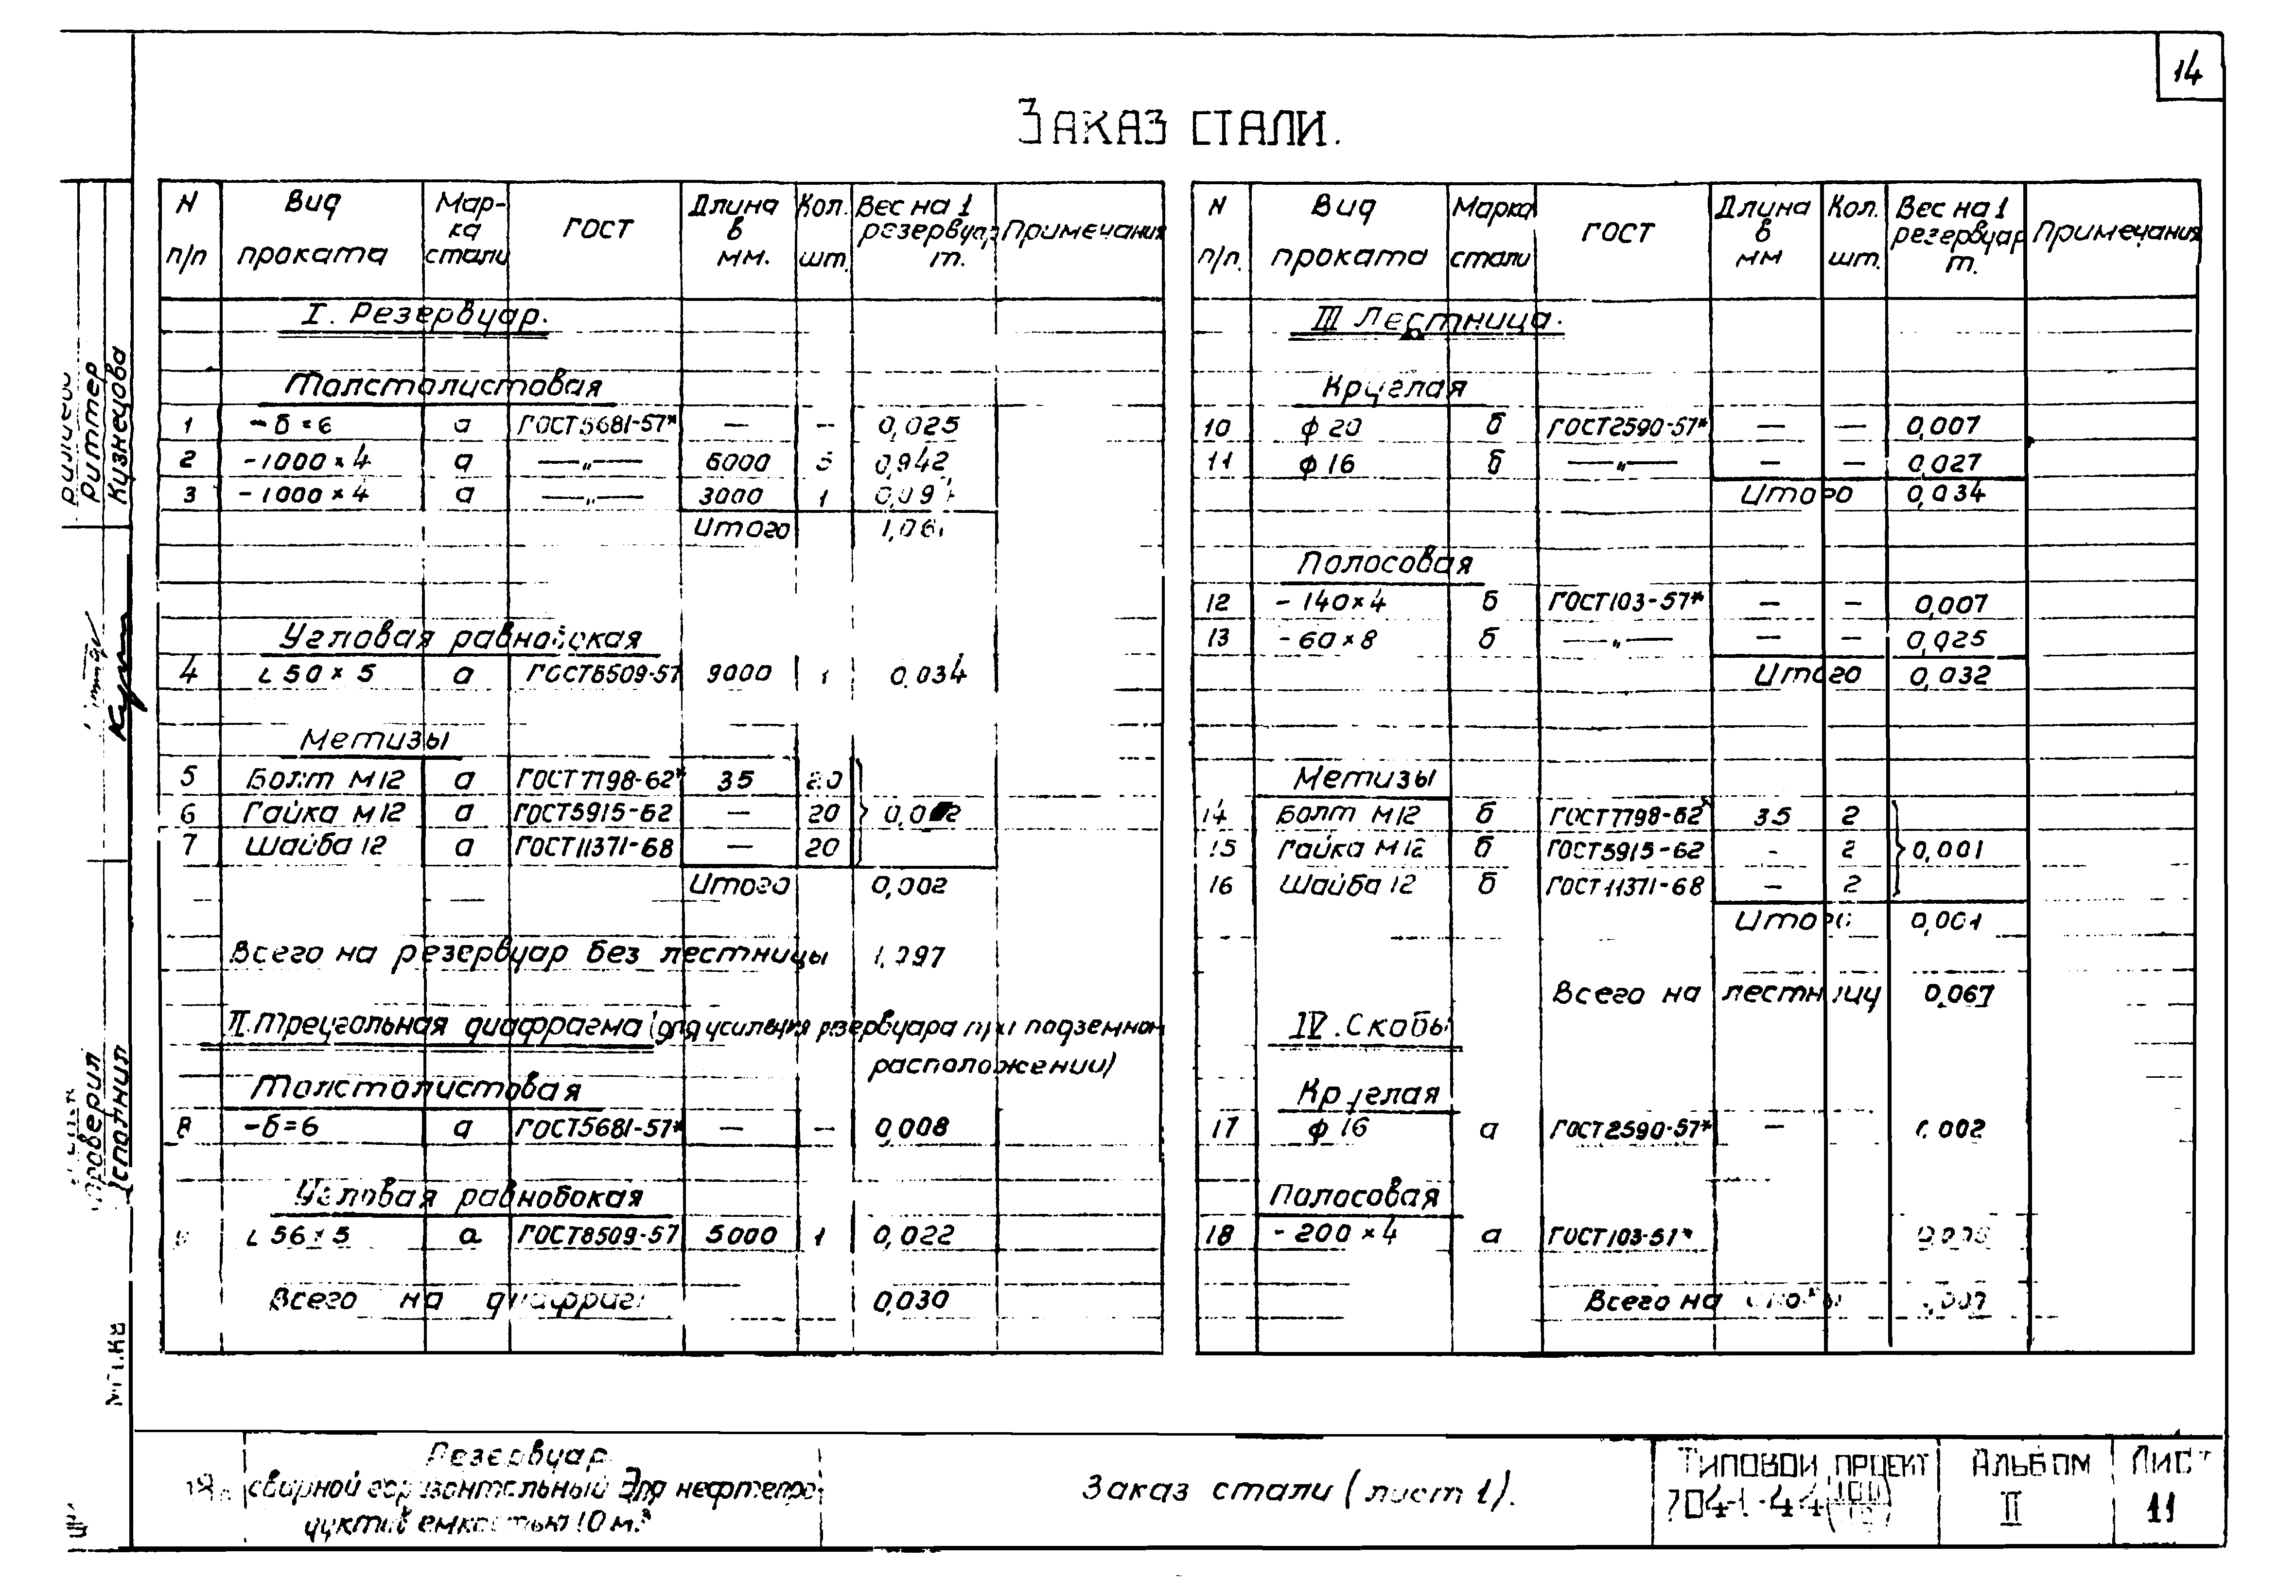 14
Заказ стали.
N п/п Вид проката Мар-ка стали ГОСТ Длина в мм. Кол. шт. Вес на 1 резервуар т. Примечания
I. Резервуар.
Толстолистовая
1 -б=6 а ГОСТ5681-57* — — 0,025
2 -1000×4 а —„— 6000 0,942
3 -1000×4 а —„— 3000 1
Итого
Угловая равнобокая
4 L50×5 а ГОСТ8509-57 9000 1 0,034
Метизы
5 Болт М12 а ГОСТ7798-62* 35 20
6 Гайка М12 а ГОСТ5915-62 — 20
7 Шайба 12 а ГОСТ11371-68 — 20
Итого 0,002
Всего на резервуар без лестницы 1,097
II. Треугольная диафрагма (для усиления резервуара при подземном
расположении)
Толстолистовая
8 -б=6 а ГОСТ5681-57* — — 0,008
Угловая равнобокая
L56×5 а ГОСТ8509-57 5000 1 0,022
Всего на 0,030
N п/п. Вид проката Марка стали ГОСТ Длина в мм Кол. шт. Вес на 1 резервуар т. Примечания
III Лестница.
Круглая
10 ф20 б ГОСТ2590-57* — — 0,007
11 ф16 б —„— — — 0,027
Итого 0,034
Полосовая
12 -140×4 б ГОСТ103-57* — — 0,007
13 -60×8 б —„— — — 0,025
Итого 0,032
Метизы
14 Болт М12 б ГОСТ7798-62 35 2
15 Гайка М12 б ГОСТ5915-62 - 2 0,001
16 Шайба 12 б ГОСТ11371-68 — 2
Итого 0,001
Всего на лестницу 0,067
IV. Скобы
Круглая
17 ф16 а ГОСТ2590-57* — 0.002
Полосовая
18 -200×4 а ГОСТ103-57*
Всего на скобы
Риттер
Кузнецова
Проверил
Исполнил
Резервуар
сварной горизонтальный для нефтепро-
дуктов емкостью 10 м³
Заказ стали (лист 1).
Типовой проект
704-1-44
Альбом
II
Лист
11